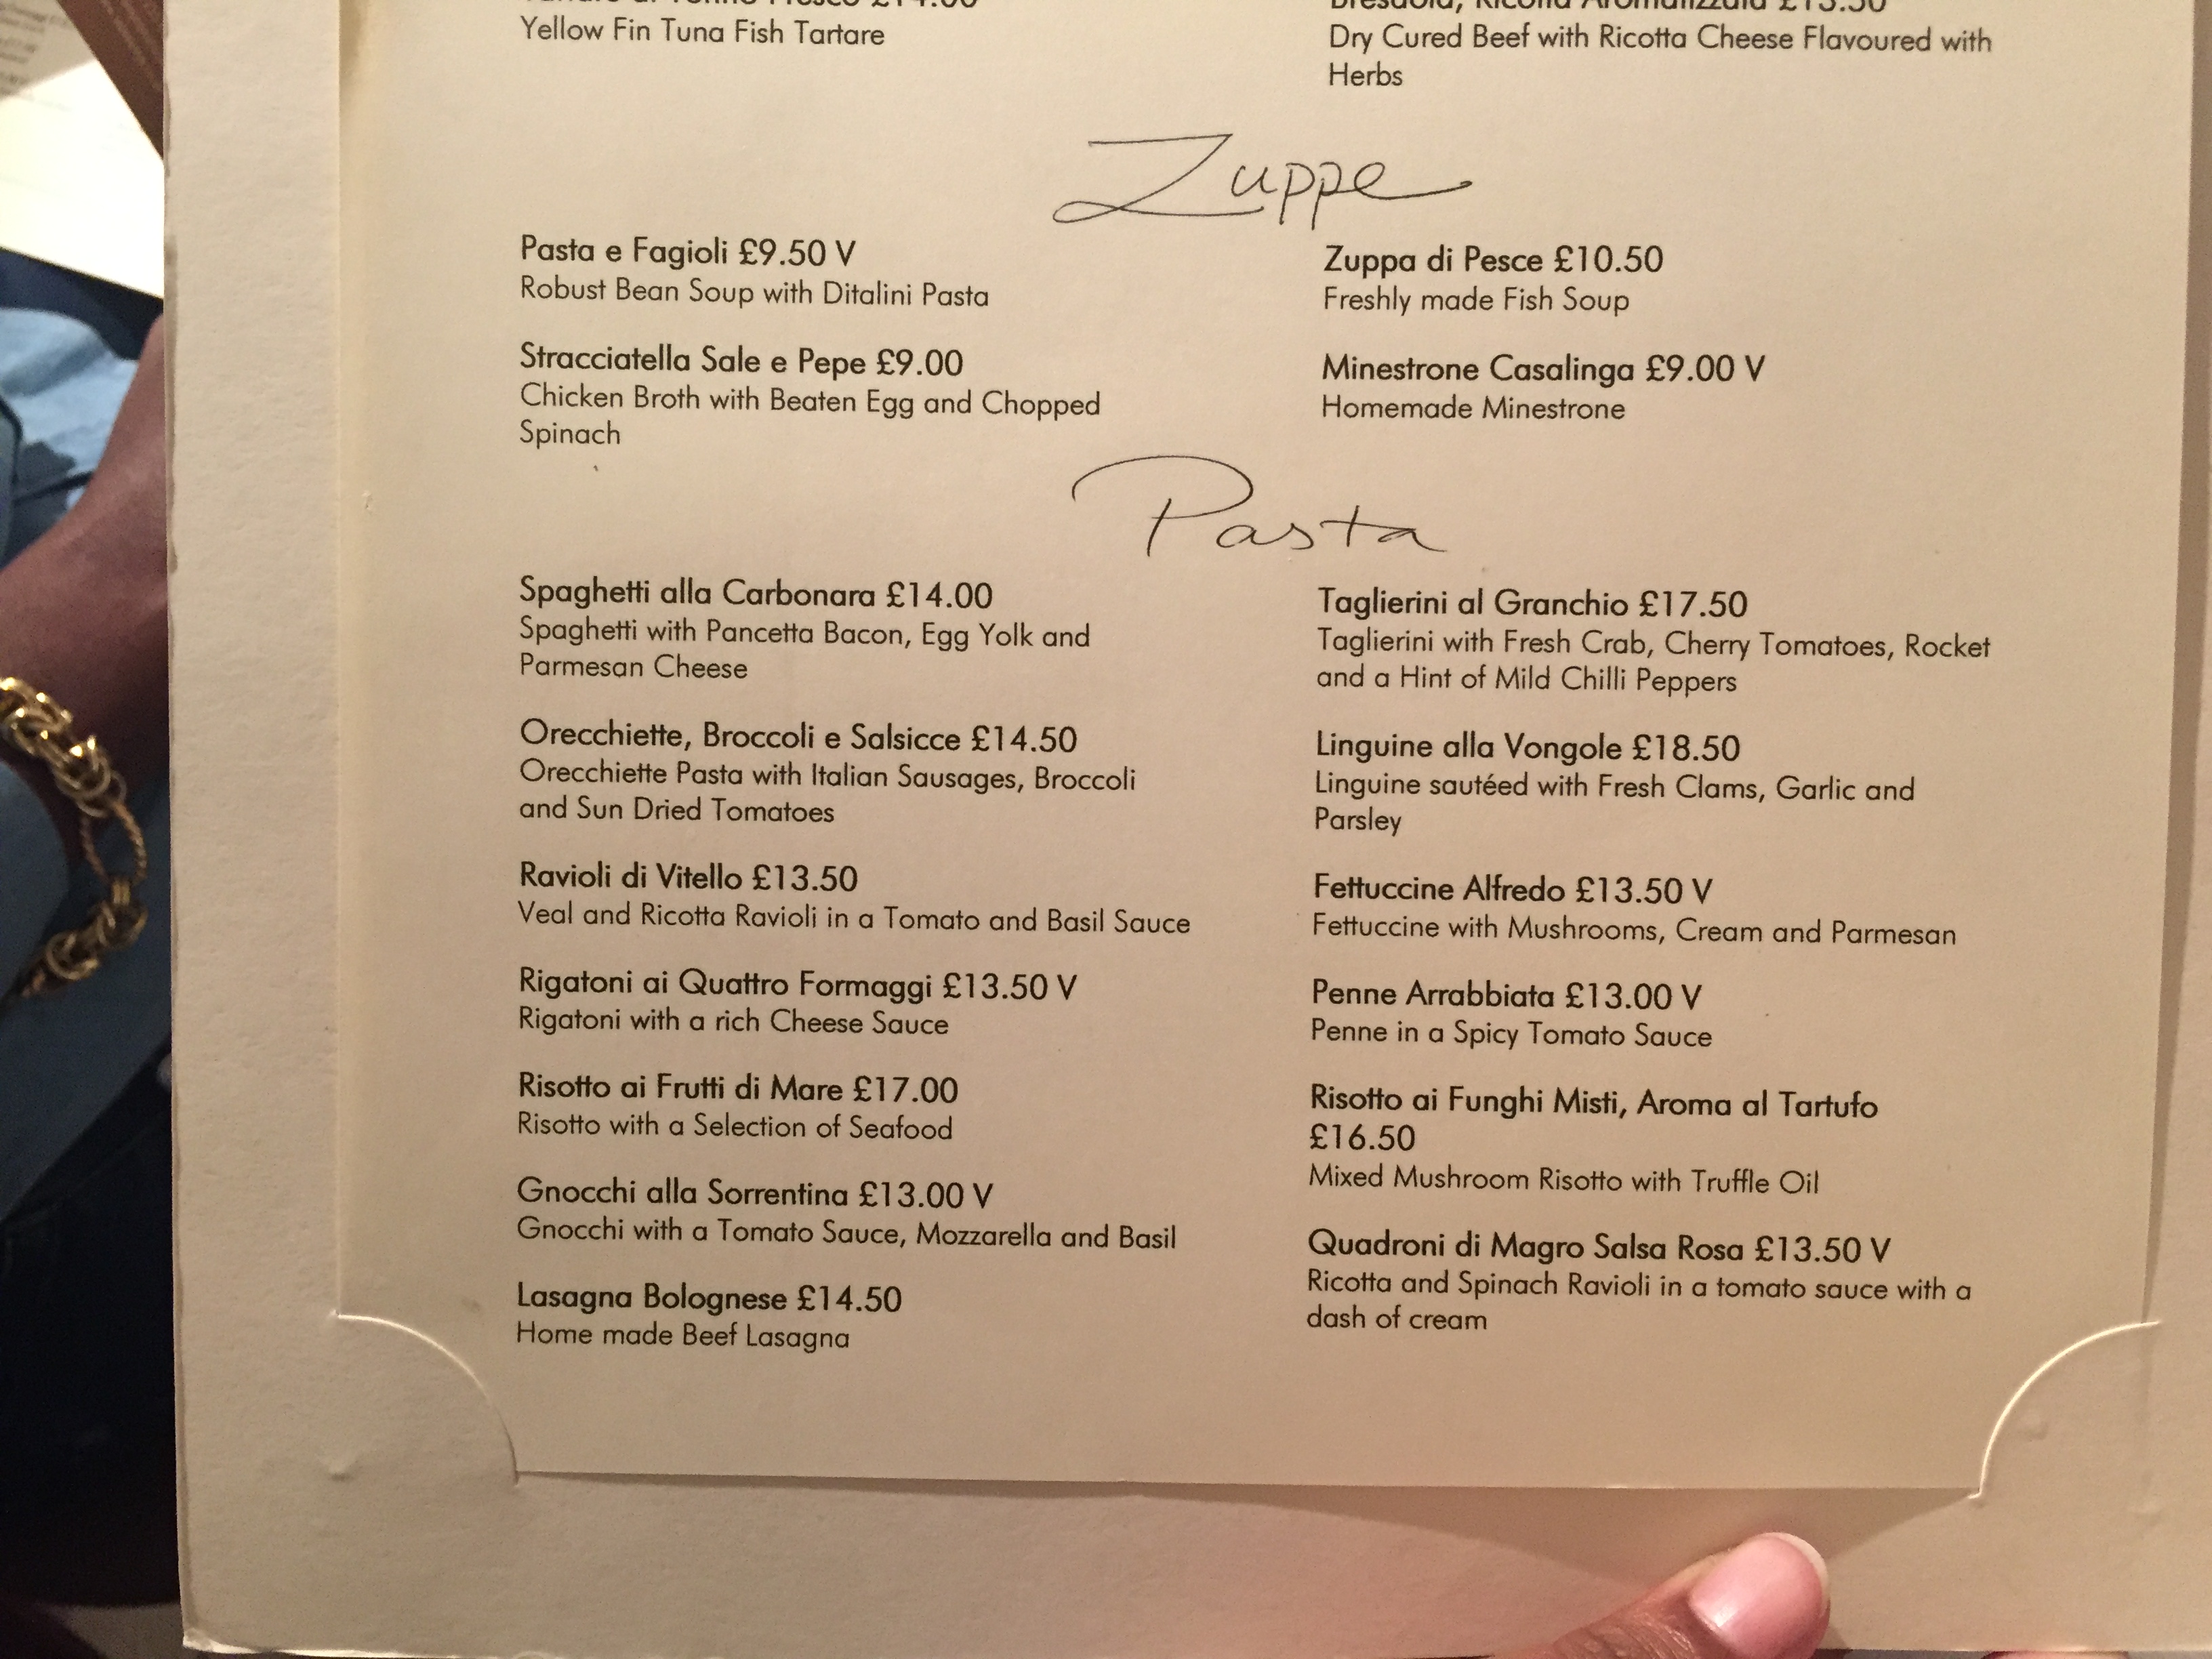 Yellow Fin Tuna Fish Tartare
Dry Cured Beef with Ricotta Cheese Flavoured with
Herbs
Zuppe
Pasta e Fagioli £9.50 V
Robust Bean Soup with Ditalini Pasta
Stracciatella Sale e Pepe £9.00
Chicken Broth with Beaten Egg and Chopped
Spinach
Zuppa di Pesce £10.50
Freshly made Fish Soup
Minestrone Casalinga £9.00 V
Homemade Minestrone
Pasta
Spaghetti alla Carbonara £14.00
Spaghetti with Pancetta Bacon, Egg Yolk and
Parmesan Cheese
Orecchiette, Broccoli e Salsicce £14.50
Orecchiette Pasta with Italian Sausages, Broccoli
and Sun Dried Tomatoes
Ravioli di Vitello £13.50
Veal and Ricotta Ravioli in a Tomato and Basil Sauce
Rigatoni ai Quattro Formaggi £13.50 V
Rigatoni with a rich Cheese Sauce
Risotto ai Frutti di Mare £17.00
Risotto with a Selection of Seafood
Gnocchi alla Sorrentina £13.00 V
Gnocchi with a Tomato Sauce, Mozzarella and Basil
Lasagna Bolognese £14.50
Home made Beef Lasagna
Taglierini al Granchio £17.50
Taglierini with Fresh Crab, Cherry Tomatoes, Rocket
and a Hint of Mild Chilli Peppers
Linguine alla Vongole £18.50
Linguine sautéed with Fresh Clams, Garlic and
Parsley
Fettuccine Alfredo £13.50 V
Fettuccine with Mushrooms, Cream and Parmesan
Penne Arrabbiata £13.00 V
Penne in a Spicy Tomato Sauce
Risotto ai Funghi Misti, Aroma al Tartufo
£16.50
Mixed Mushroom Risotto with Truffle Oil
Quadroni di Magro Salsa Rosa £13.50 V
Ricotta and Spinach Ravioli in a tomato sauce with a
dash of cream